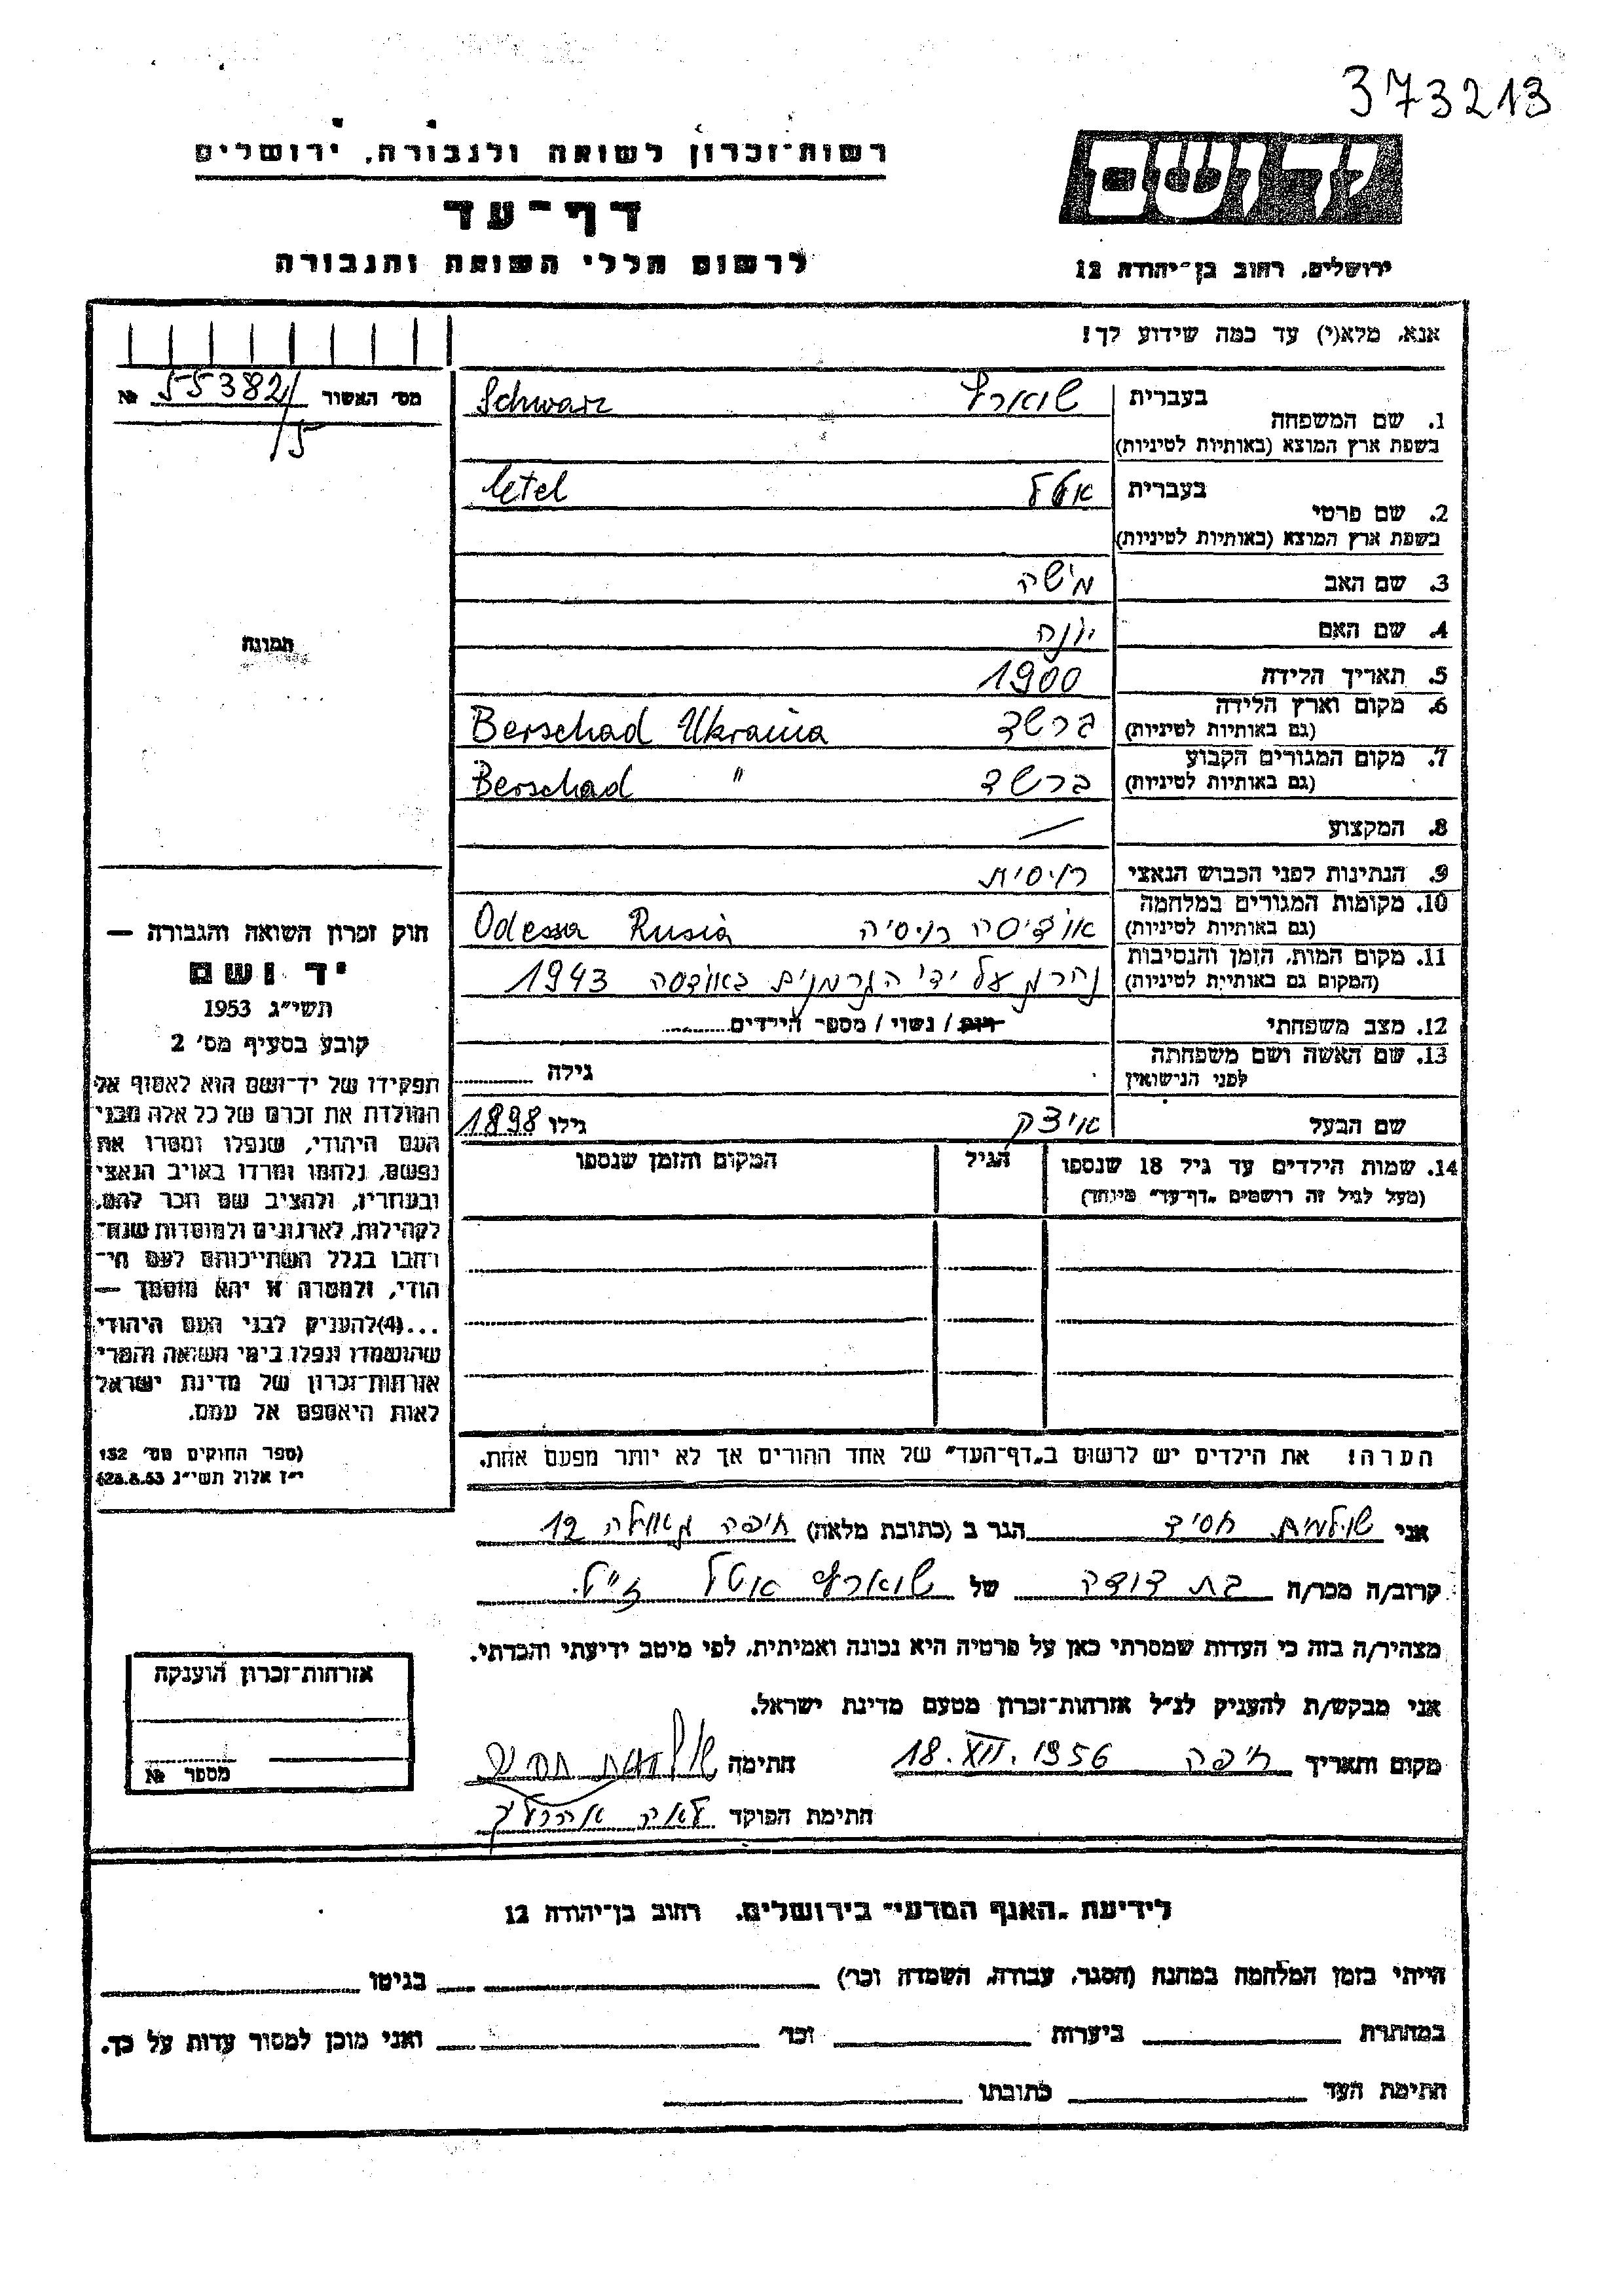 373213
יד ושם
רשות־זכרון לשואה ולגבורה, ירושלים
דף־עד
לרשום חללי השואה והגבורה
ירושלים, רחוב בן־יהודה 12
אנא, מלא(י) עד כמה שידוע לך!
מס׳ האשור 55382/5 №
1. שם המשפחה
בעברית שוארץ Schwarz
בשפת ארץ המוצא (באותיות לטיניות)
2. שם פרטי
בעברית אטל Etel
בשפת ארץ המוצא (באותיות לטיניות)
3. שם האב משה
4. שם האם יונה
5. תאריך הלידה 1900
6. מקום וארץ הלידה ברשד Berschad Ukraina
(גם באותיות לטיניות)
7. מקום המגורים הקבוע ברשד Berschad "
(גם באותיות לטיניות)
8. המקצוע —
9. הנתינות לפני הכבוש הנאצי רוסית
10. מקומות המגורים במלחמה אודיסה רוסיה Odessa Rusia
(גם באותיות לטיניות)
11. מקום המות, הזמן והנסיבות נהרגו על ידי הגרמנים באודסה 1943
(המקום גם באותיות לטיניות)
12. מצב משפחתי רווק / נשוי / מספר הילדים
13. שם האשה ושם משפחתה גילה
לפני הנישואין
שם הבעל איצק גילו 1898
14. שמות הילדים עד גיל 18 שנספו הגיל המקום והזמן שנספו
(מעל לגיל זה רושמים „דף־עד" מיוחד)
הערה! את הילדים יש לרשום ב„דף־העד" של אחד ההורים אך לא יותר מפעם אחת.
תמונה
חוק זכרון השואה והגבורה —
יד ושם
תשי״ג 1953
קובע בסעיף מס׳ 2
תפקידו של יד־ושם הוא לאסוף אל
המולדת את זכרם של כל אלה מבני
העם היהודי, שנפלו ומסרו את
נפשם, נלחמו ומרדו באויב הנאצי
ובעוזריו, ולהציב שם וזכר להם,
לקהילות, לארגונים ולמוסדות שנח־
רבו בגלל השתייכותם לעם הי־
הודי, ולמטרה זו יהא מוסמך —
...(4)להעניק לבני העם היהודי
שהושמדו ונפלו בימי השואה והמרי
אזרחות־זכרון של מדינת ישראל
לאות היאספם אל עמם.
(ספר החוקים מס׳ 132
י״ז אלול תשי״ג 28.8.53)
אני שולמית חסיד הגר ב (כתובת מלאה) חיפה גאולה 12
קרוב/ה מכר/ה בת דודה של שוארץ אטל ז״ל
מצהיר/ה בזה כי העדות שמסרתי כאן על פרטיה היא נכונה ואמיתית, לפי מיטב ידיעתי והכרתי.
אני מבקש/ת להעניק לנ״ל אזרחות־זכרון מטעם מדינת ישראל.
מקום ותאריך חיפה 18.XII.1956 חתימה שולמית חסיד
חתימת הפוקד לאה
אזרחות־זכרון הוענקה
מספר №
לידיעת „האגף המדעי" בירושלים, רחוב בן־יהודה 12
הייתי בזמן המלחמה במחנה (הסגר, עבודה, השמדה וכו׳) בגיטו
במחתרת ביערות וכו׳ ואני מוכן למסור עדות על כך.
חתימת העד כתובתו